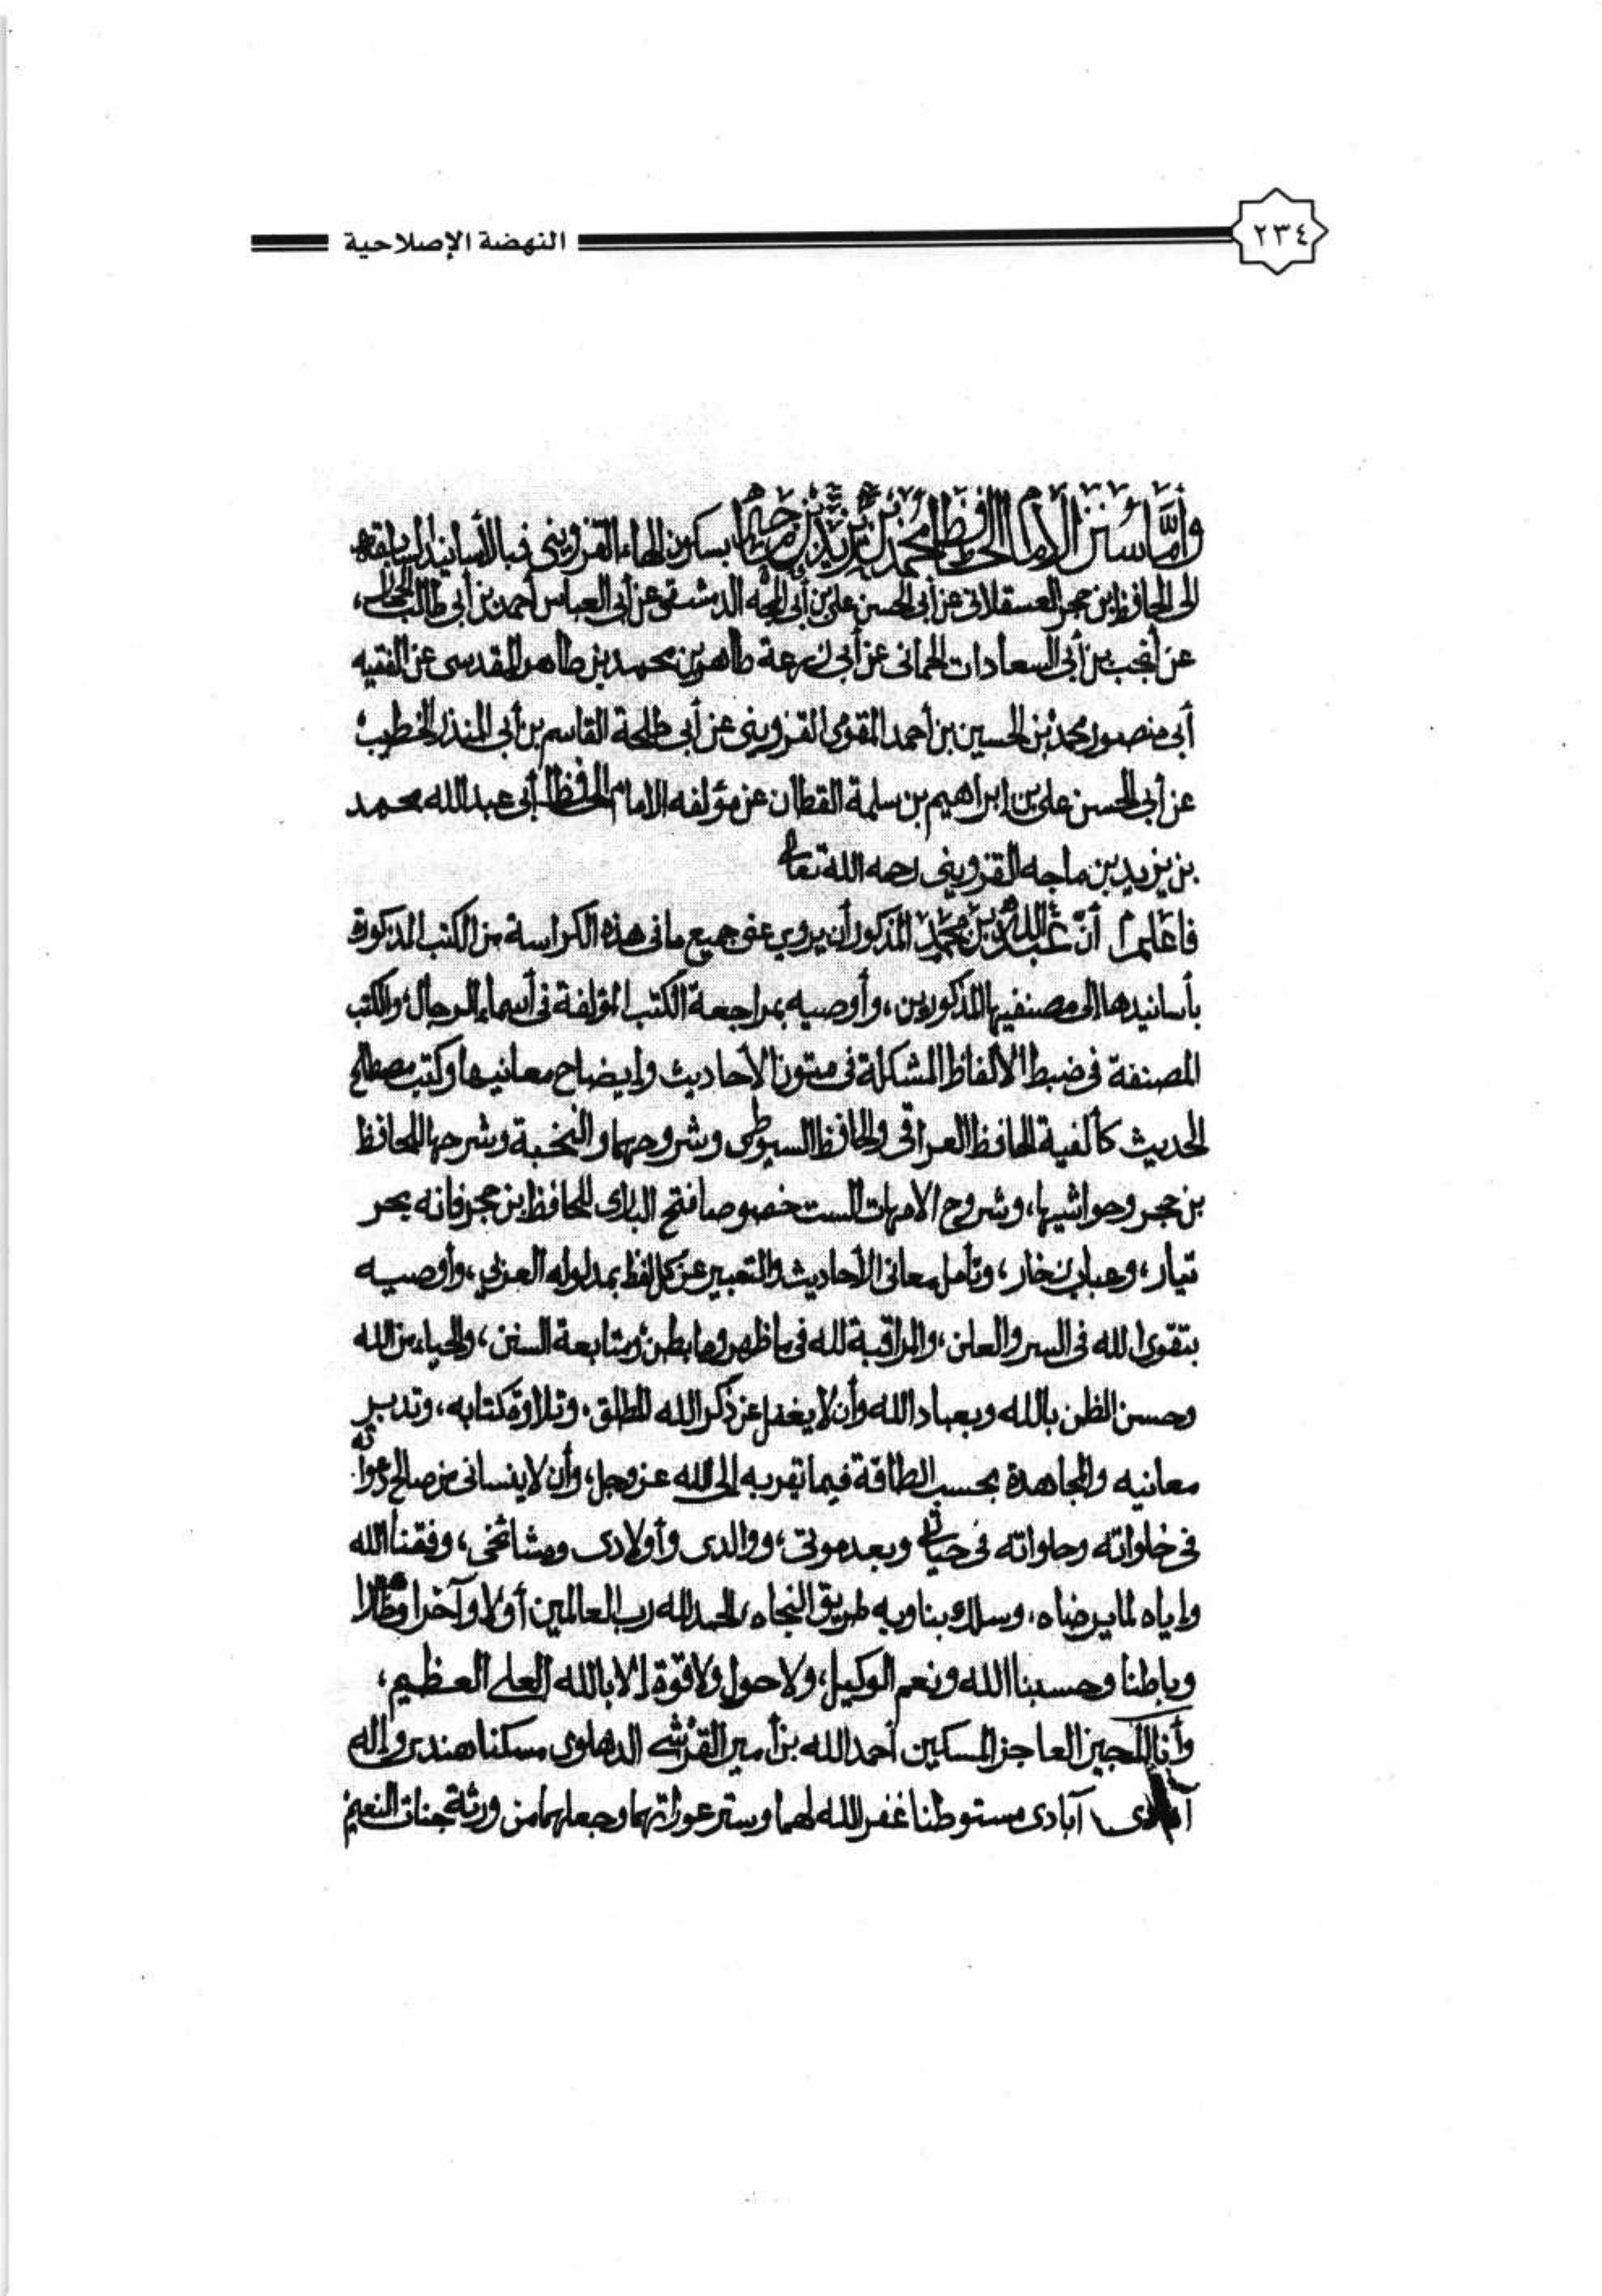 ٢٣٤
النهضة الإصلاحية
وأما سنن الإمام الحافظ محمد بن يزيد بن ماجه بسكون الهاء القزويني فبالأسانيد السابقة
الى الحافظ ابن حجر العسقلاني عن أبي الحسن علي بن أبي المجد الدمشقي عن أبي العباس أحمد بن أبي طالب الحجار،
عن أنجب بن أبي السعادات الحمانى عن أبي زرعة طاهر بن محمد بن طاهر المقدسي عن الفقيه
أبي منصور محمد بن الحسين بن أحمد المقومي القزويني عن أبي طلحة القاسم بن أبي المنذر الخطيب
عن أبي الحسن علي بن إبراهيم بن سلمة القطان عن مؤلفه الامام الحافظ أبي عبد الله محمد
بن يزيد بن ماجه القزويني رحمه الله تعالى
فاعلم أن عبد الله بن محمد المذكور أن يروي عني جميع ما في هذه الكراسة من الكتب المذكورة
بأسانيدها إلى مصنفيها المذكورين، وأوصيه بمراجعة الكتب المؤلفة في أسماء الرجال والكتب
المصنفة في ضبط الألفاظ المشكلة في متون الأحاديث وإيضاح معانيها وكتب مصطلح
الحديث كألفية الحافظ العراقي والحافظ السيوطي وشروحهما والنخبة وشرحها للحافظ
بن حجر وحواشيها، وشروح الامهات الست خصوصا فتح الباري للحافظ ابن حجر فانه بحر
تيار، وعباب زخار، وتأمل معاني الأحاديث والتعبير عن كل لفظ بمدلوله العربي، وأوصيه
بتقوى الله في السر والعلن، والمراقبة لله في ما ظهر وما بطن ومتابعة السنن، والحياء من الله
وحسن الظن بالله وبعباد الله وأن لا يغفل عن ذكر الله المطلق، وتلاوة كتابه، وتدبر
معانيه والمجاهدة بحسب الطاقة فيما تقربه إلى الله عز وجل، وأن لا ينساني من صالح دعواته
في خلواته وجلواته في حياتي وبعد موتي، ووالدي وأولادي ومشائخي، وفقنا الله
وإياه لما يرضاه، وسلك بنا وبه طريق النجاه، الحمد لله رب العالمين أولا وآخرا وظاهرا
وباطنا وحسبنا الله ونعم الوكيل، ولا حول ولا قوة إلا بالله العلي العظيم،
وأنا العاجز المسكين أحمد الله بن أمير القرشي الدهلوي مسكنا
آبادي مستوطنا غفر الله لهما وستر عوراتهما وجعلهما من ورثة جنات النعيم